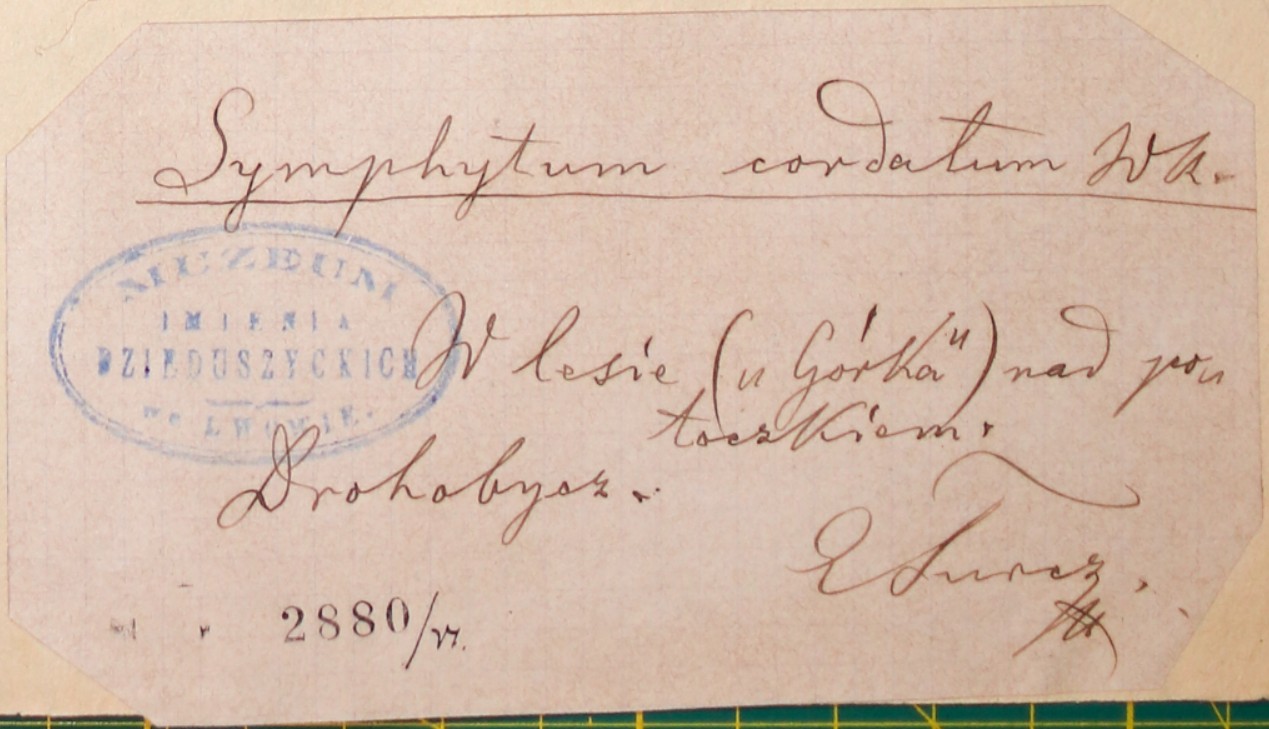 Symphytum cordatum WK.
MUZEUM
IMIENIA
DZIEDUSZYCKICH
we LWOWIE.
W lesie („Górka“) nad po„
toczkiem.
Drohobycz.
E Turcz.
2880/